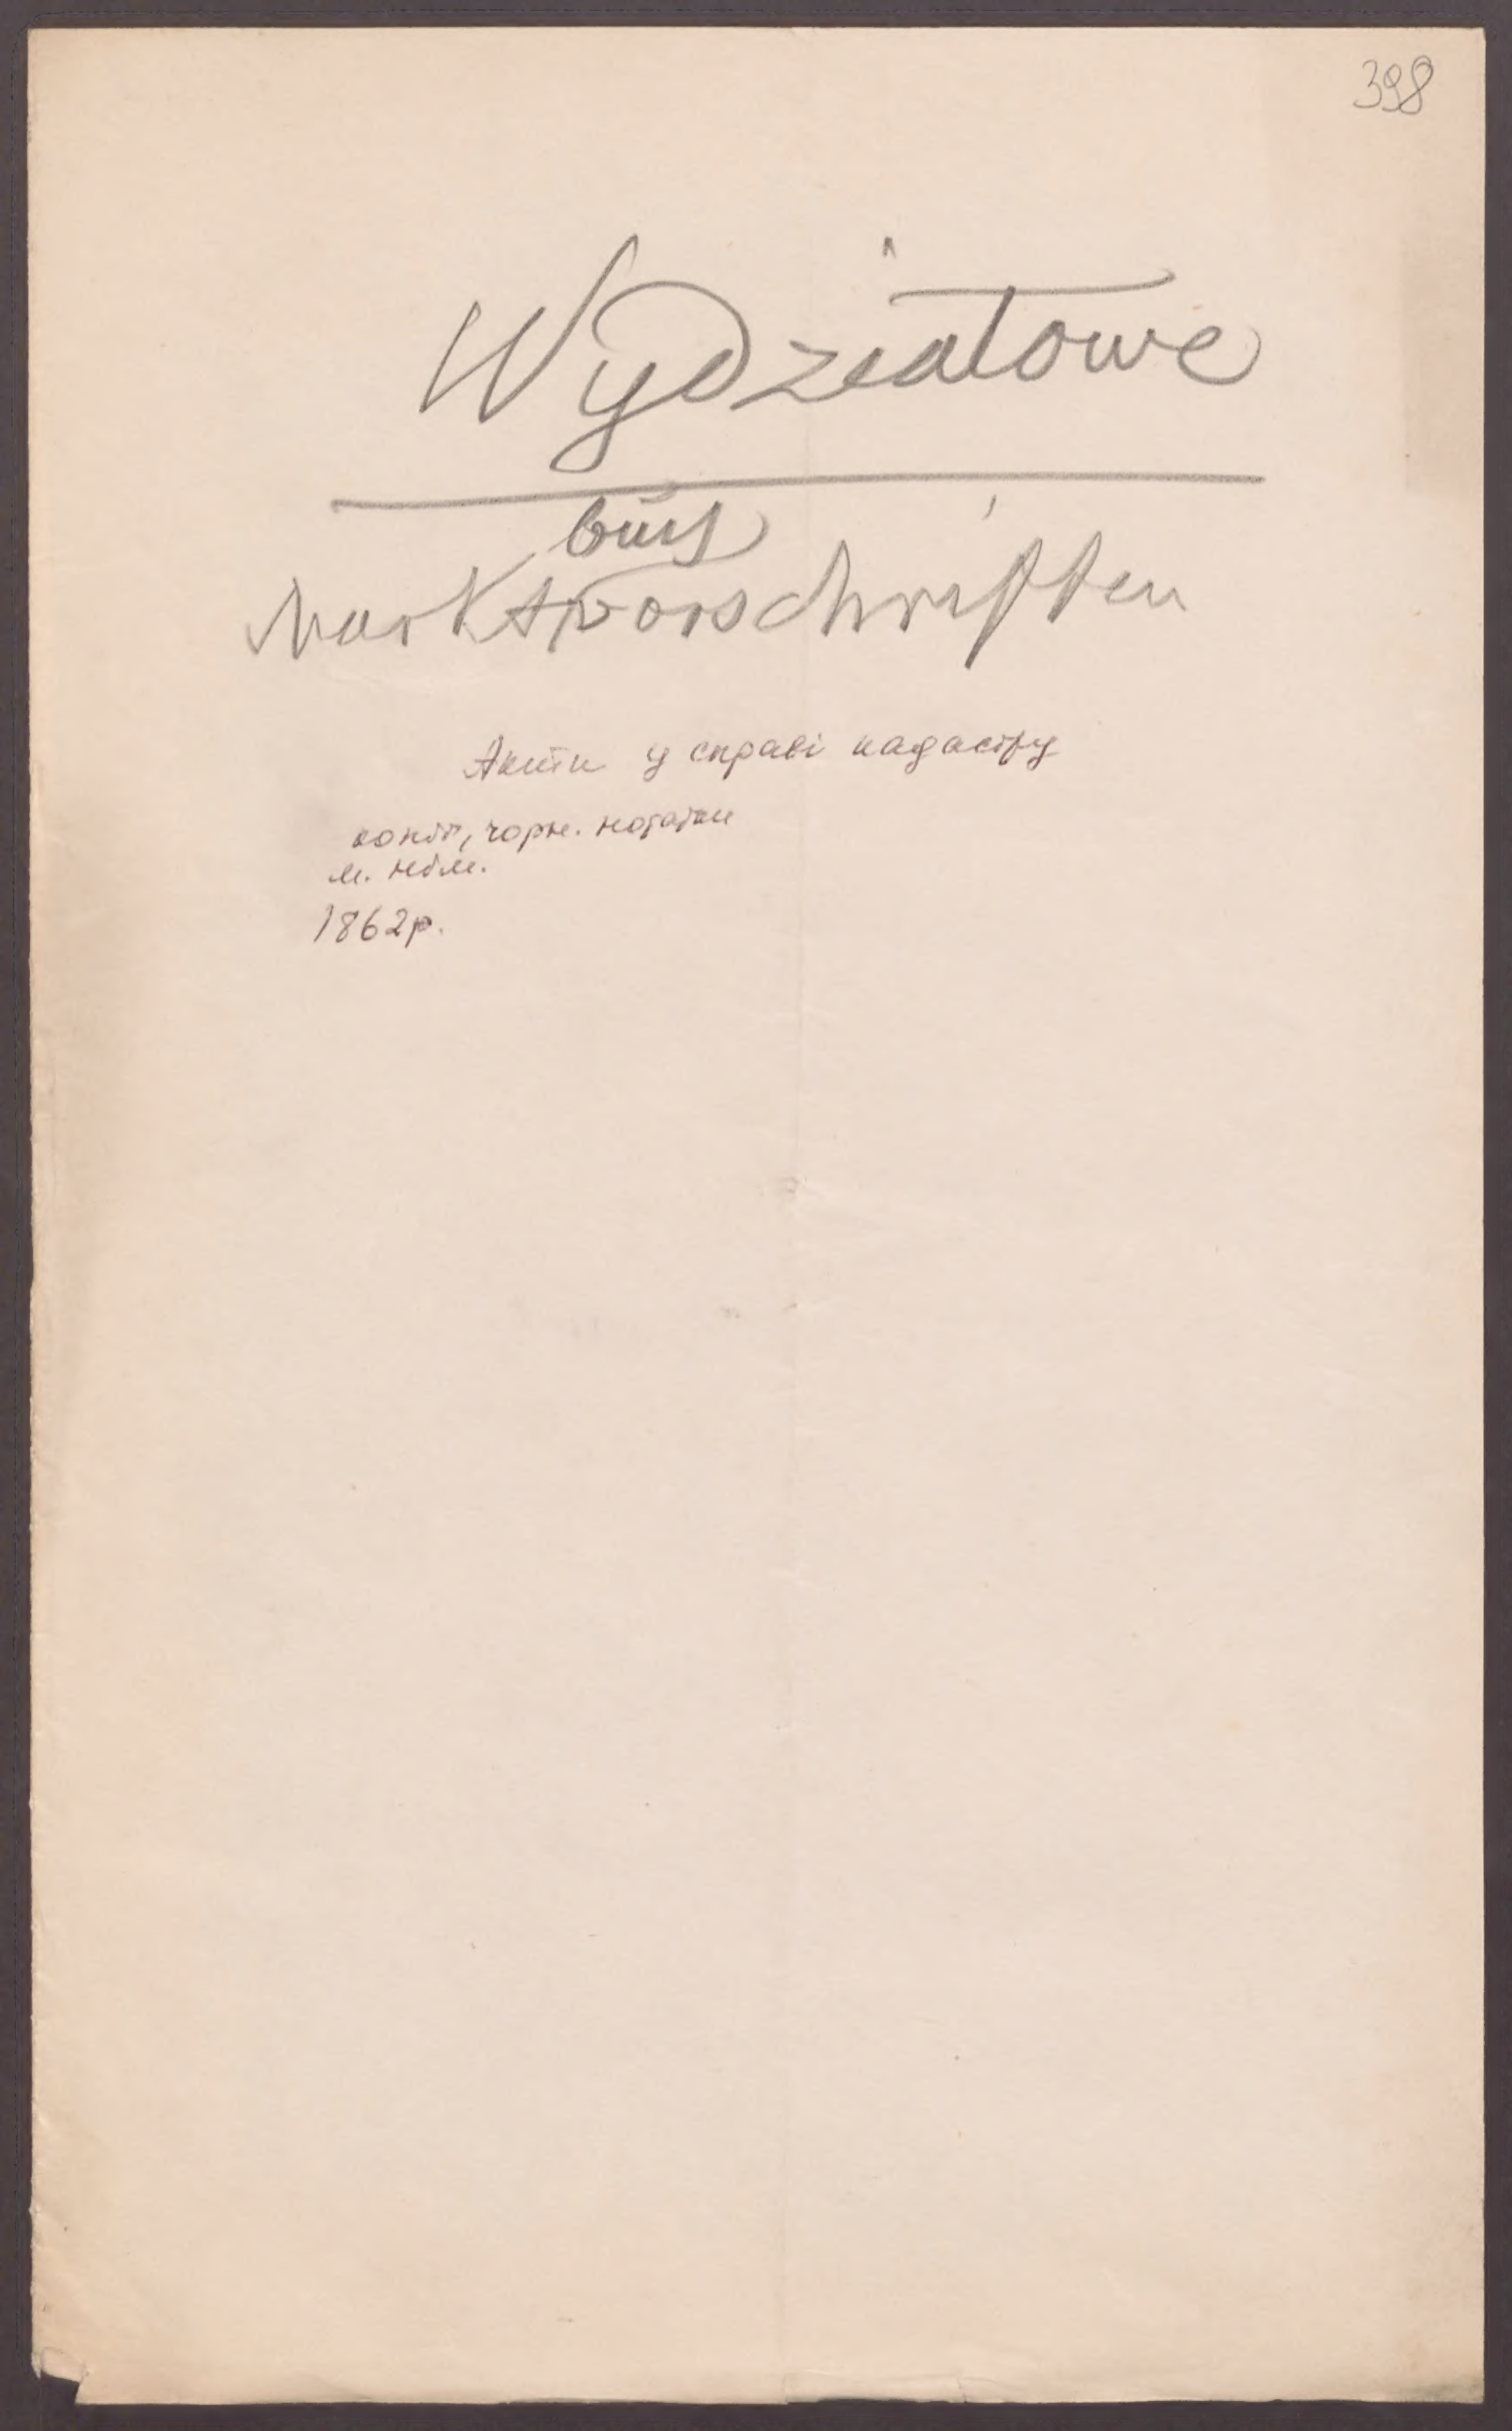 398
Wydziałowe
Marktvorschriften
Акти у справі кадастру
копії, чорн. нотатки
м. нім.
1862р.